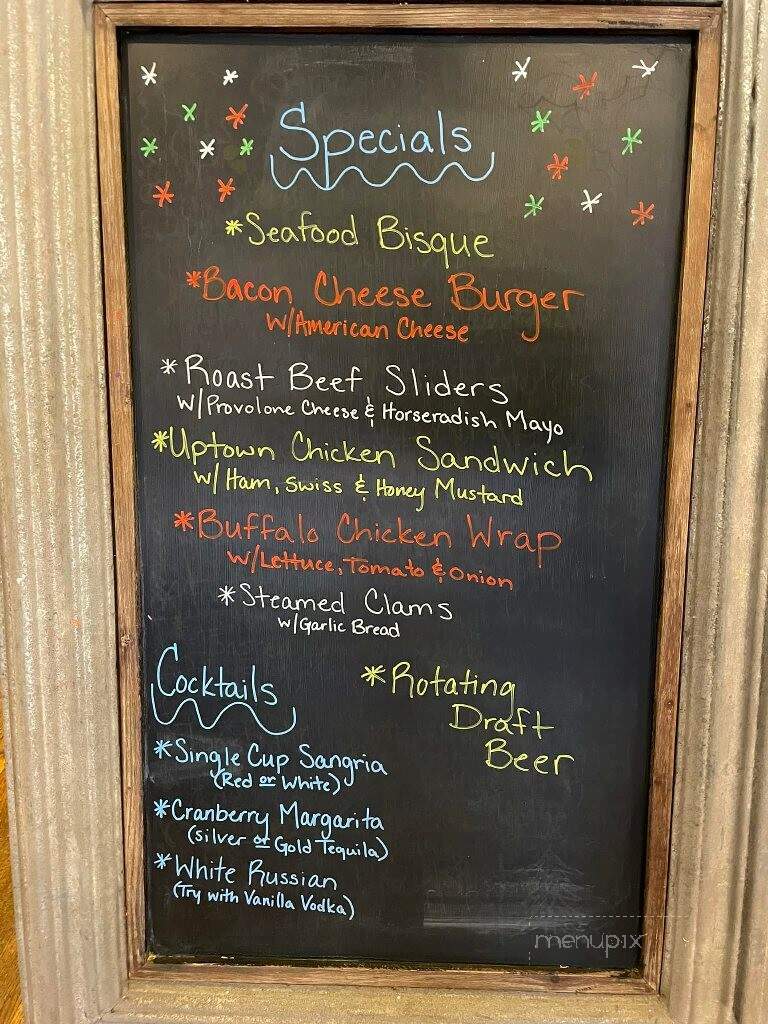 Specials
*Seafood Bisque
*Bacon Cheese Burger
w/American Cheese
*Roast Beef Sliders
w/Provolone Cheese & Horseradish Mayo
*Uptown Chicken Sandwich
w/Ham, Swiss & Honey Mustard
*Buffalo Chicken Wrap
w/Lettuce, Tomato & Onion
*Steamed Clams
w/Garlic Bread
Cocktails
*Single Cup Sangria
(Red or White)
*Cranberry Margarita
(Silver or Gold Tequila)
*White Russian
(Try with Vanilla Vodka)
*Rotating
Draft
Beer
menupix